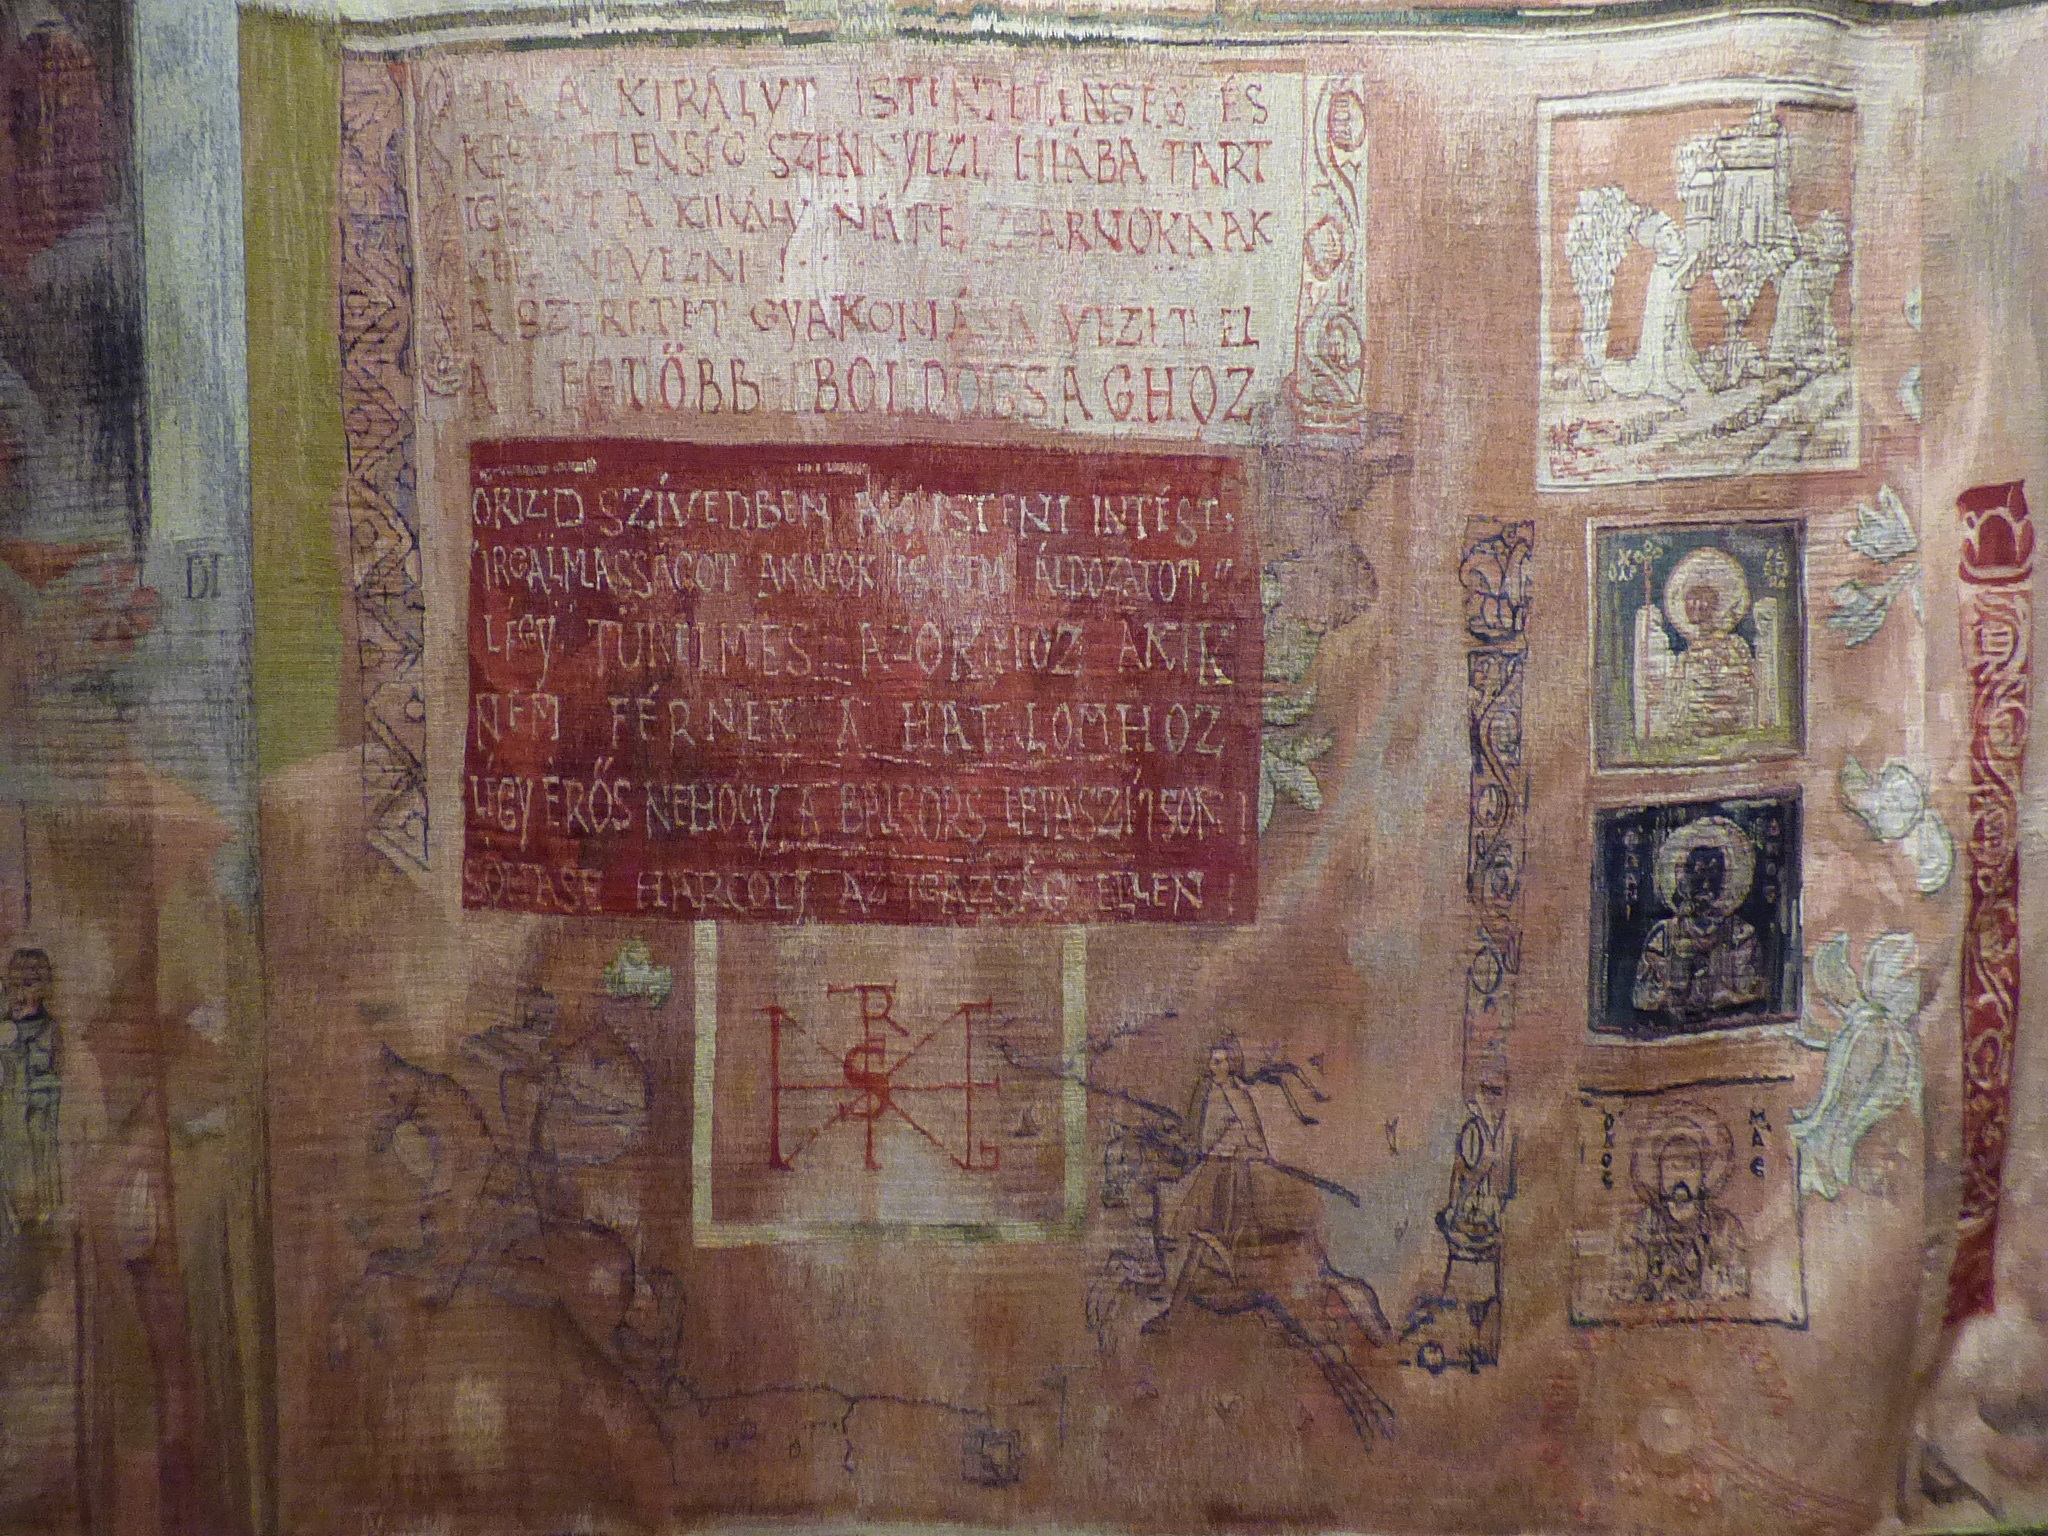 HA A KIRÁLYT ISTENTELENSÉG ÉS
KEGYETLENSÉG SZENNYEZI, HIÁBA TART
IGÉNYT A KIRÁLY NÉVRE, ZSARNOKNAK
KELL NEVEZNI!
A SZERETET GYAKORLÁSA VEZET EL
A LEGTÖBB BOLDOGSÁGHOZ
ŐRIZD SZÍVEDBEN AZ ISTENI INTÉST:
"IRGALMASSÁGOT AKAROK ÉS NEM ÁLDOZATOT."
LÉGY TÜRELMES AZOKHOZ AKIK
NEM FÉRNEK A HATALOMHOZ
LÉGY ERŐS NEHOGY A BALSORS LETASZÍTSON!
SOHASE HARCOLJ AZ IGAZSÁG ELLEN!
DI